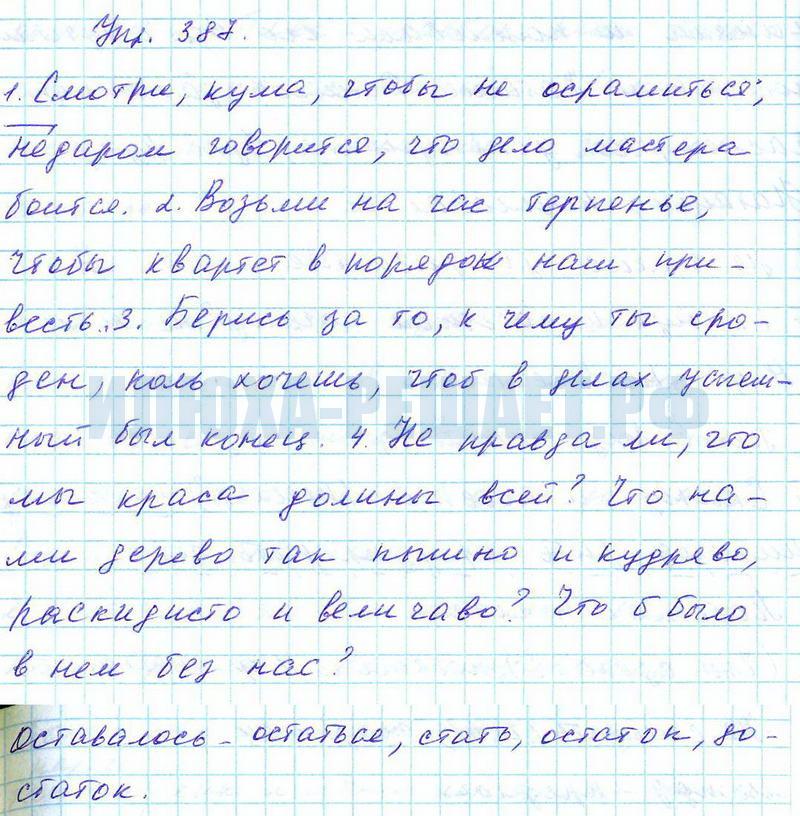 Упр. 387.
1. Смотри, кума, чтобы не осрамиться;
недаром говорится, что дело мастера
боится. 2. Возьми на час терпенье,
чтобы квартет в порядок наш при-
весть. 3. Берись за то, к чему ты сро-
ден, коль хочешь, чтоб в делах успеш-
ный был конец. 4. Не правда ли, что
мы краса долины всей? Что на-
ми дерево так пышно и кудряво,
раскидисто и величаво? Что б было
в нем без нас?
ИЛЮХА-РЕШАЕТ.РФ
оставалось - остаться, стать, остаток, до-
статок.